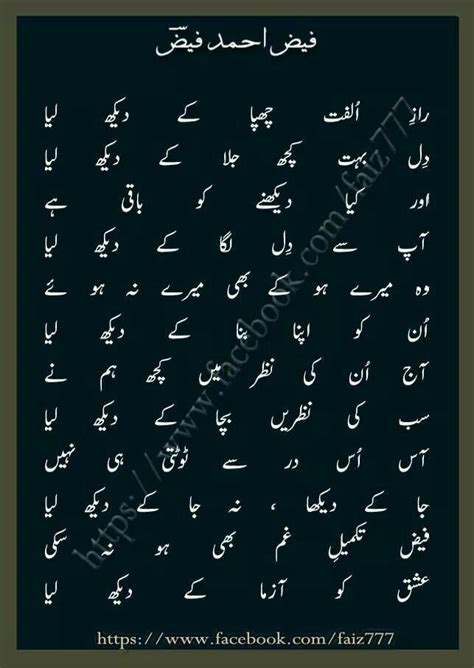 فیض احمد فیضؔ
رازِ اُلفت چھپا کے دیکھ لیا
دِل بہت کچھ جلا کے دیکھ لیا
اور کیا دیکھنے کو باقی ہے
آپ سے دِل لگا کے دیکھ لیا
وہ میرے ہو کے بھی میرے نہ ہوئے
اُن کو اپنا بنا کے دیکھ لیا
آج اُن کی نظر میں کچھ ہم نے
سب کی نظریں بچا کے دیکھ لیا
آس اُس در سے ٹوٹتی ہی نہیں
جا کے دیکھا ، نہ جا کے دیکھ لیا
فیض تکمیلِ غم بھی ہو نہ سکی
عشق کو آزما کے دیکھ لیا
https://www.facebook.com/faiz777
https://www.facebook.com/faiz777